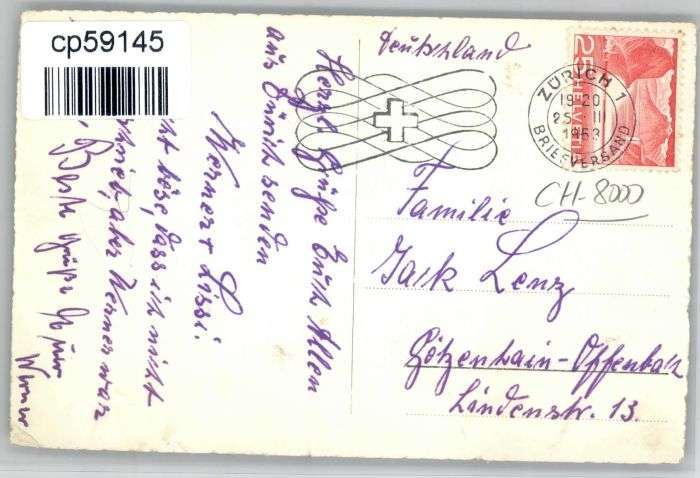 cp59145
Deutschland
25
HELVETIA
ZÜRICH 1
19-20
25. II
1953
BRIEFVERSAND
CH-8000
Familie
Jack Lenz
Götzenhain-Offenbach
Lindenstr. 13.
Herzl. Grüße Euch Allen
aus Zürich senden
Werner + Lissi.
böse, dass ich nicht
schrieb, aber Werner war
Beste Grüße
Werner